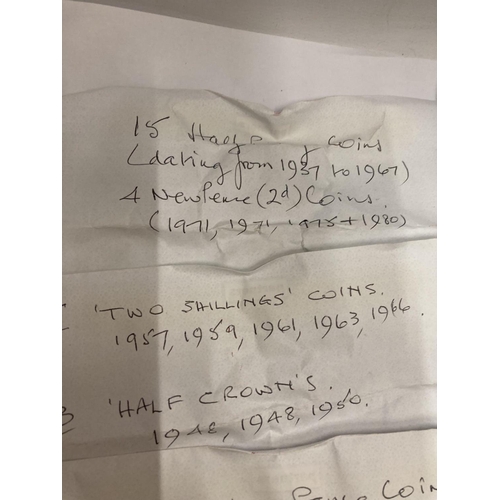 15 coins
(dating from 1937 to 1967)
4 New Pence (2d) Coins.
(1971, 1971, 1975 + 1980)
'TWO SHILLINGS' COINS.
1957, 1959, 1961, 1963, 1966.
'HALF CROWN'S.
1948, 1948, 1950.
COIN